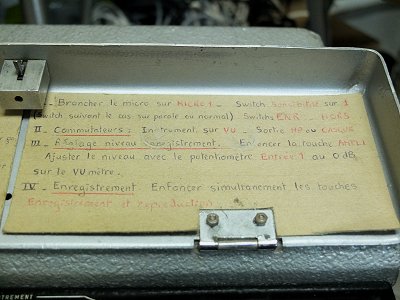 I - Brancher le micro sur MICRO 1 - Switch sensibilité sur 1
(switch suivant le cas sur parole ou normal) Switchs ENR - HORS
II - Commutateurs : Instrument sur VU - Sortie HP ou CASQUE
III - Réglage niveau Enregistrement. Enfoncer la touche AMPLI
Ajuster le niveau avec le potentiomètre Entrée 1 au 0 dB,
sur le VU mètre.
IV - Enregistrement Enfoncer simultanement les touches
Enregistrement et reproduction
TREMENT